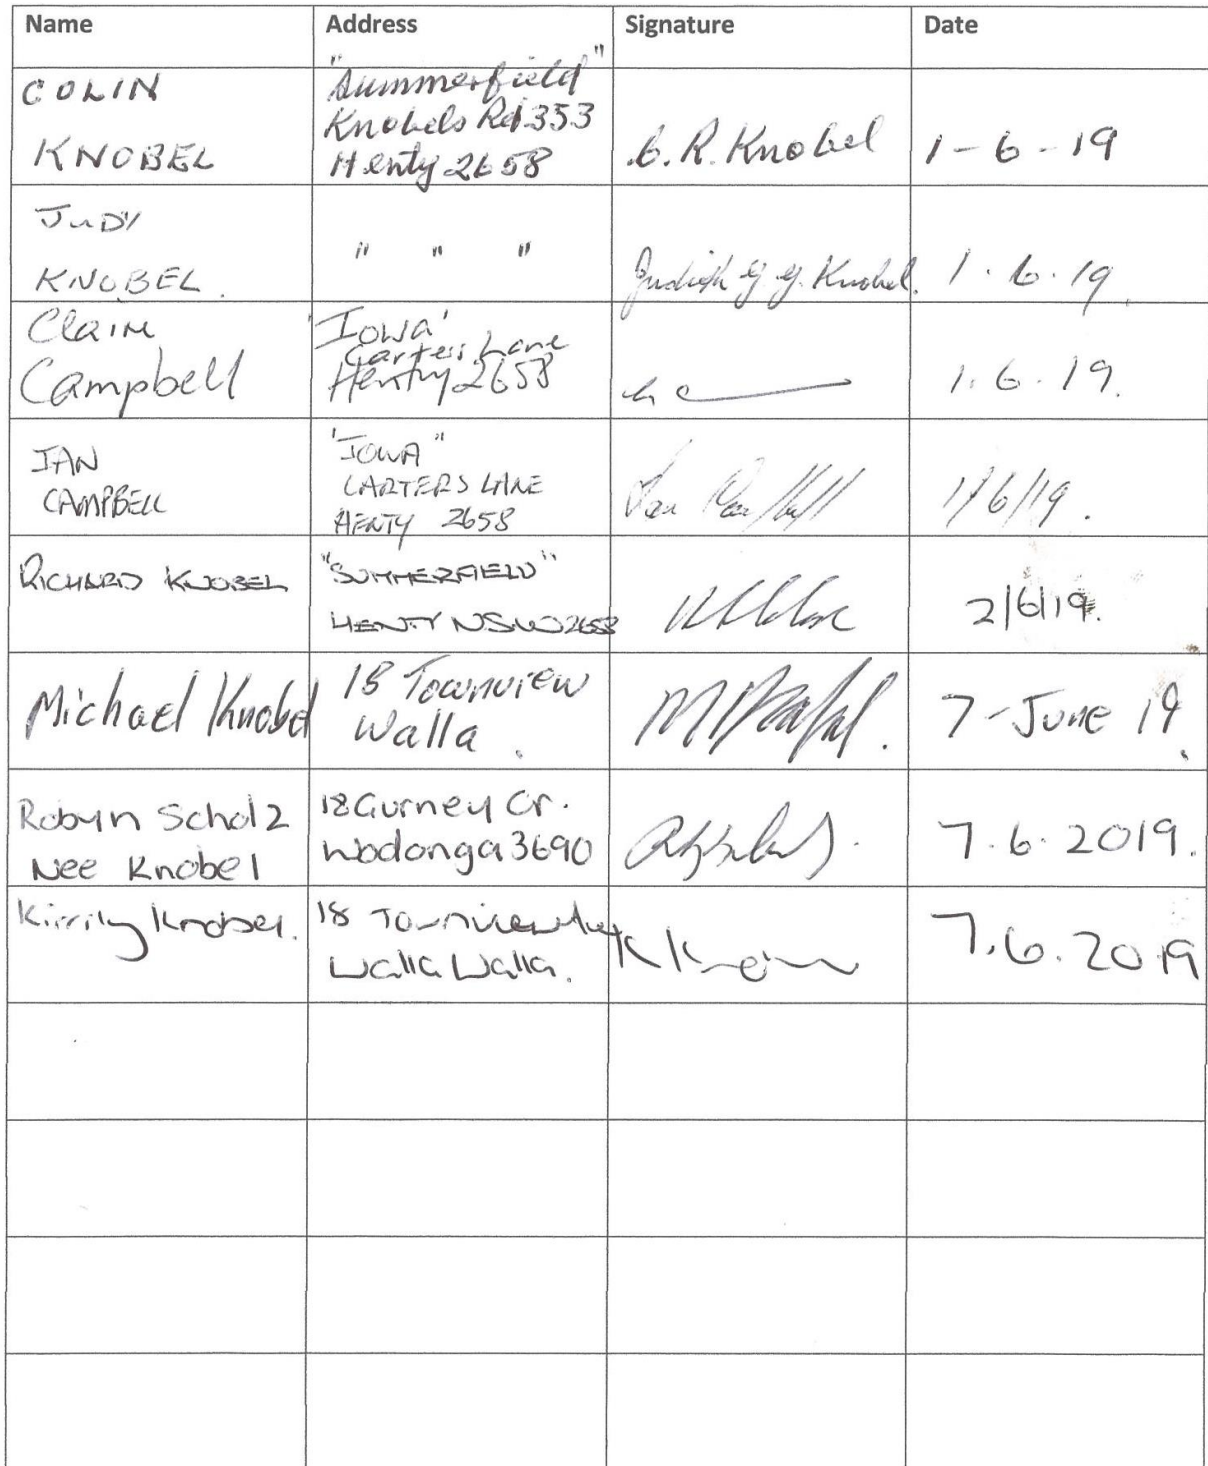 Name Address Signature Date
COLIN "Summerfield"
Knobels Rd 353
KNOBEL Henty 2658 C.R. Knobel 1-6-19
JUDY
KNOBEL. " " " Judith Y. Y. Knobel. 1.6.19.
Claire 'Iowa'
Carters Lane
Campbell Henty 2658 1.6.19.
IAN 'IOWA"
CAMPBELL CARTERS LANE
HENTY 2658 Ian Campbell 1/6/19.
RICHARD KNOBEL "SUMMERFIELD"
HENTY NSW 2658 2/6/19.
Michael Knobel 18 Townview
Walla. 7-June 19.
Robyn Scholz 18 Gurney Cr.
Nee Knobel Wodonga 3690 7.6.2019.
Kirrily Knobel. 18 Townview Ave
Walla Walla. 7.6.2019